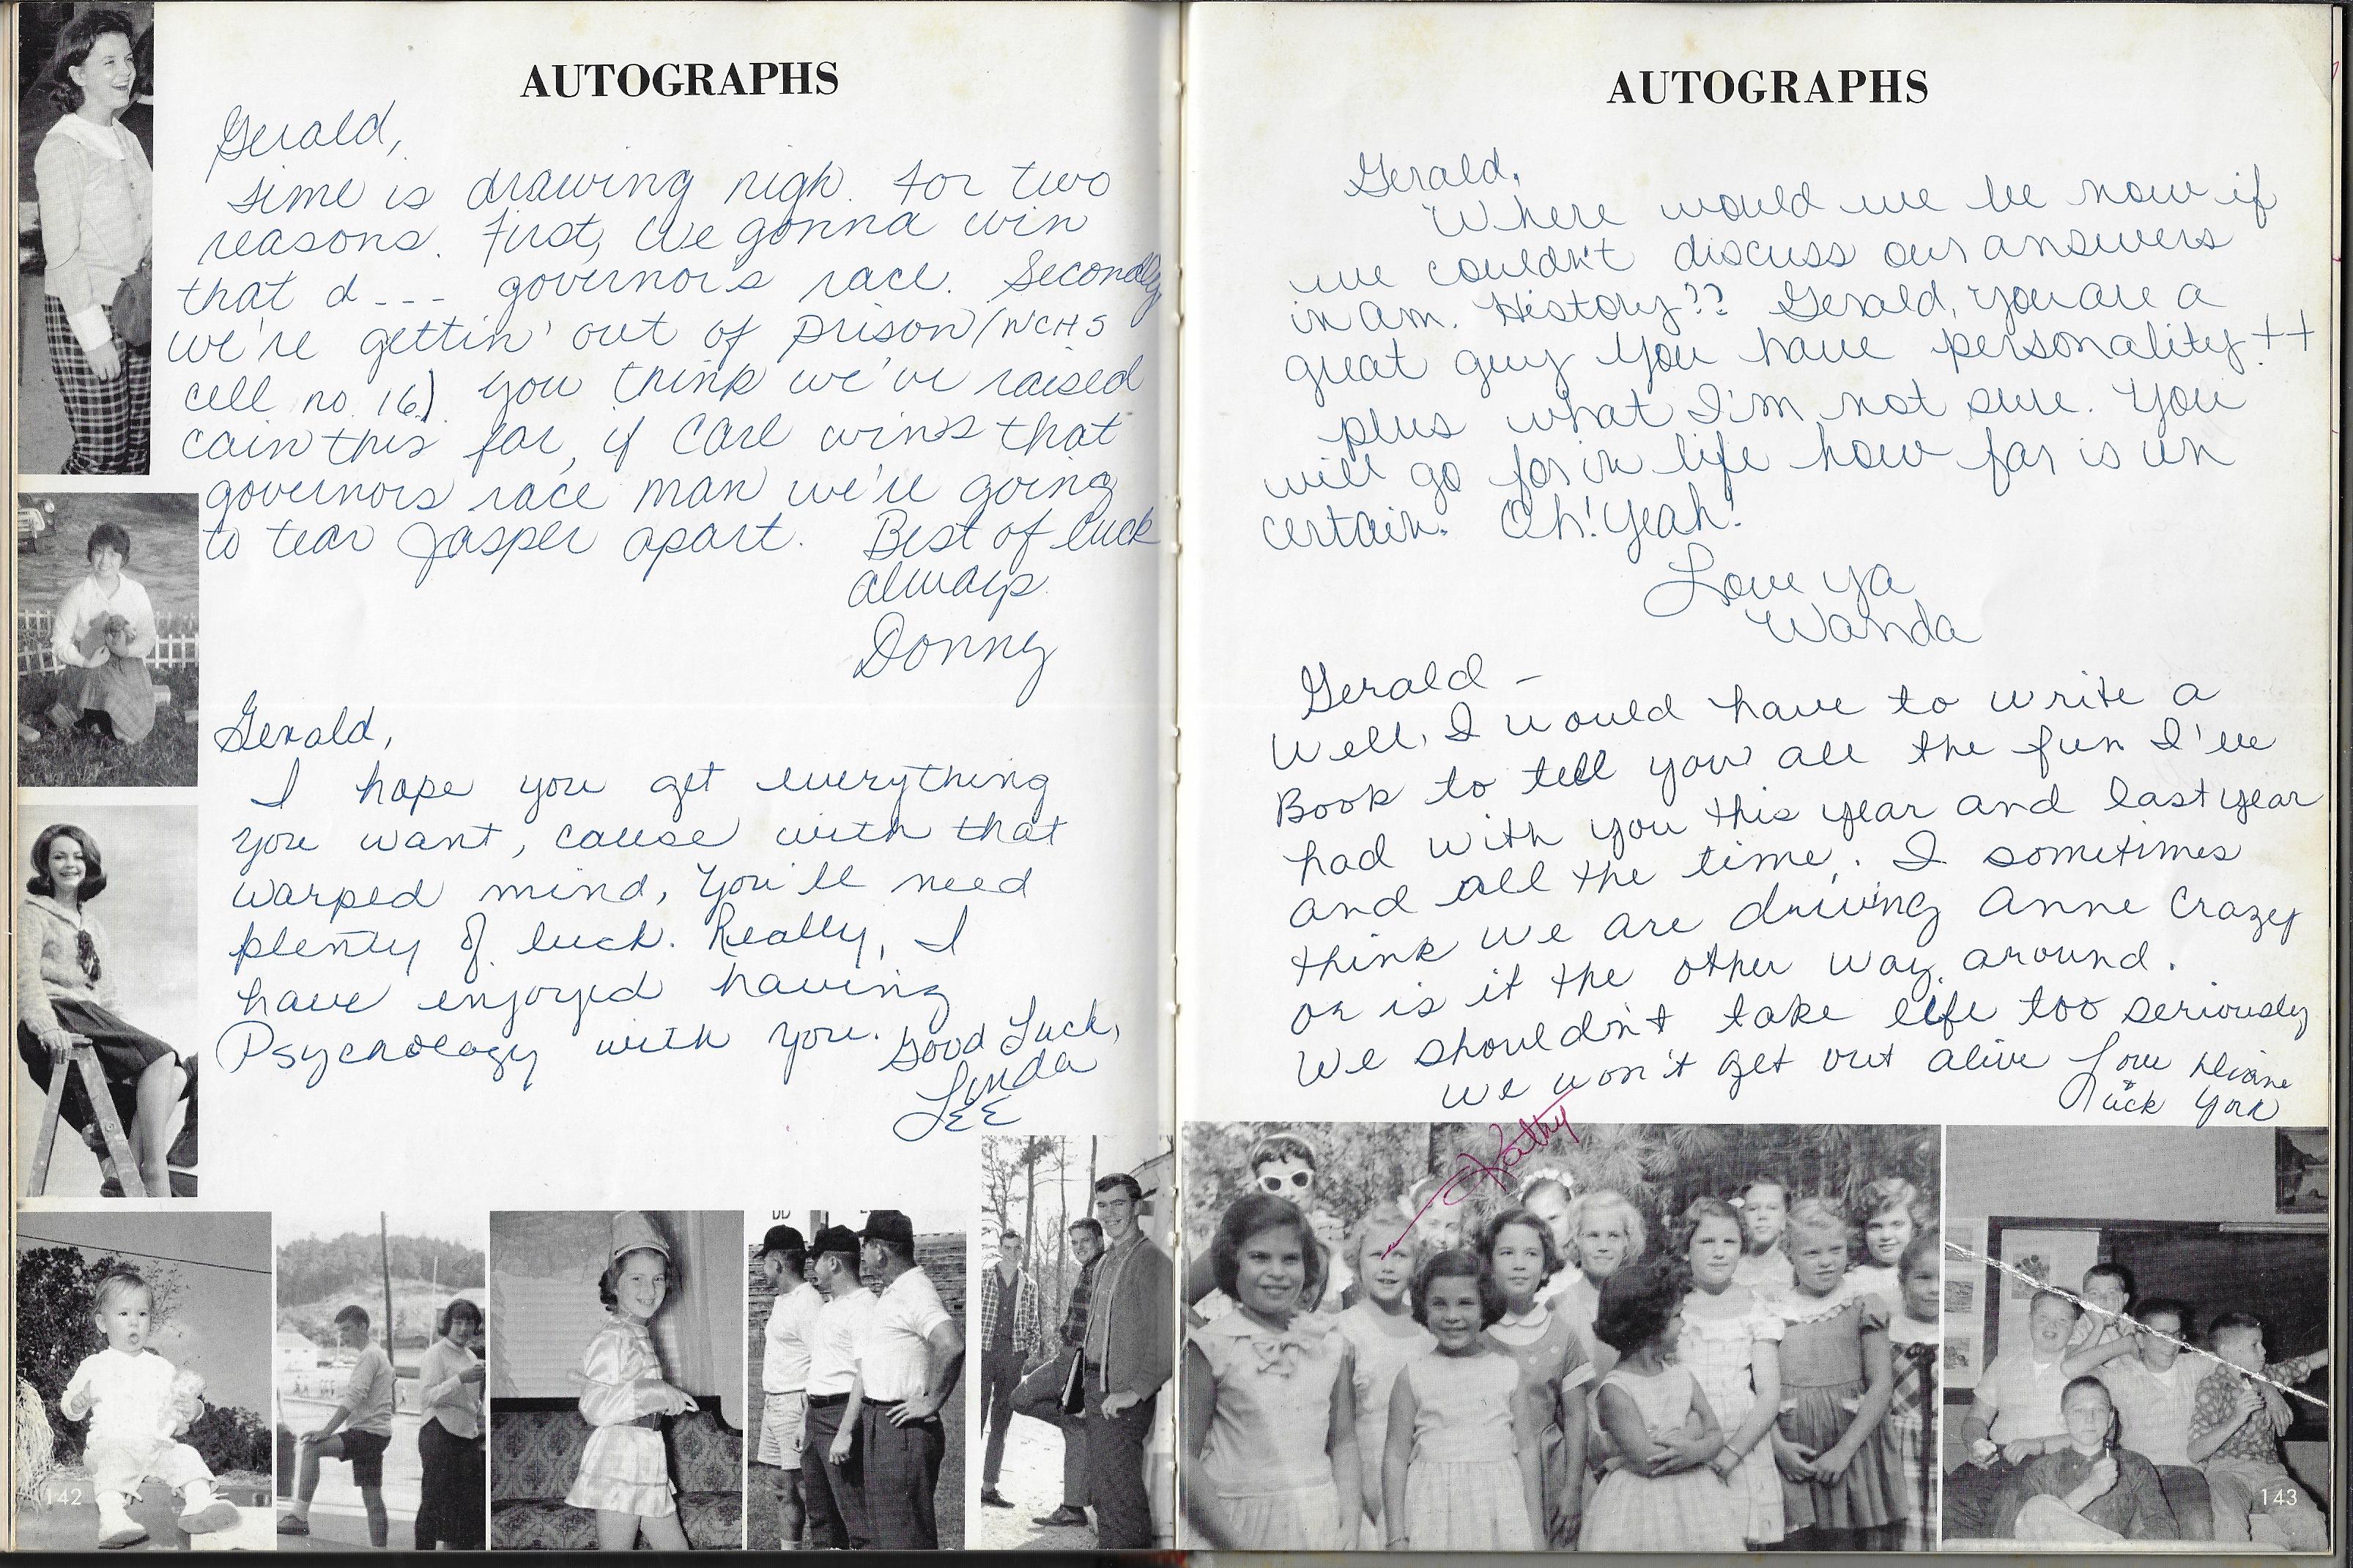 AUTOGRAPHS
Gerald,
Time is drawing nigh. For two
reasons. First, We gonna win
that d--- governors race. Secondly
we're gettin' out of prison (WCHS
cell no. 16). You think we've raised
cain this far, if Carl wins that
governors race man we're going
to tear Jasper apart. Best of luck
always
Donny
Gerald,
I hope you get everything
you want, cause with that
warped mind, you'll need
plenty of luck. Really, I
have enjoyed having
Psychology with you. Good Luck,
Linda
LEE
142
AUTOGRAPHS
Gerald,
Where would we be now if
we couldn't discuss our answers
in am. History?? Gerald, you are a
great guy you have personality ++
plus what I'm not sure. You
will go far in life how far is un
certain. Oh! Yeah!
Love ya
Wanda
Gerald -
Well, I would have to write a
Book to tell you all the fun I've
had with you this year and last year
and all the time. I sometimes
think we are driving Anne Crazy
or is it the other way around.
We shouldn't take life too seriously
We won't get out alive Love Diane
York
Kathy
143